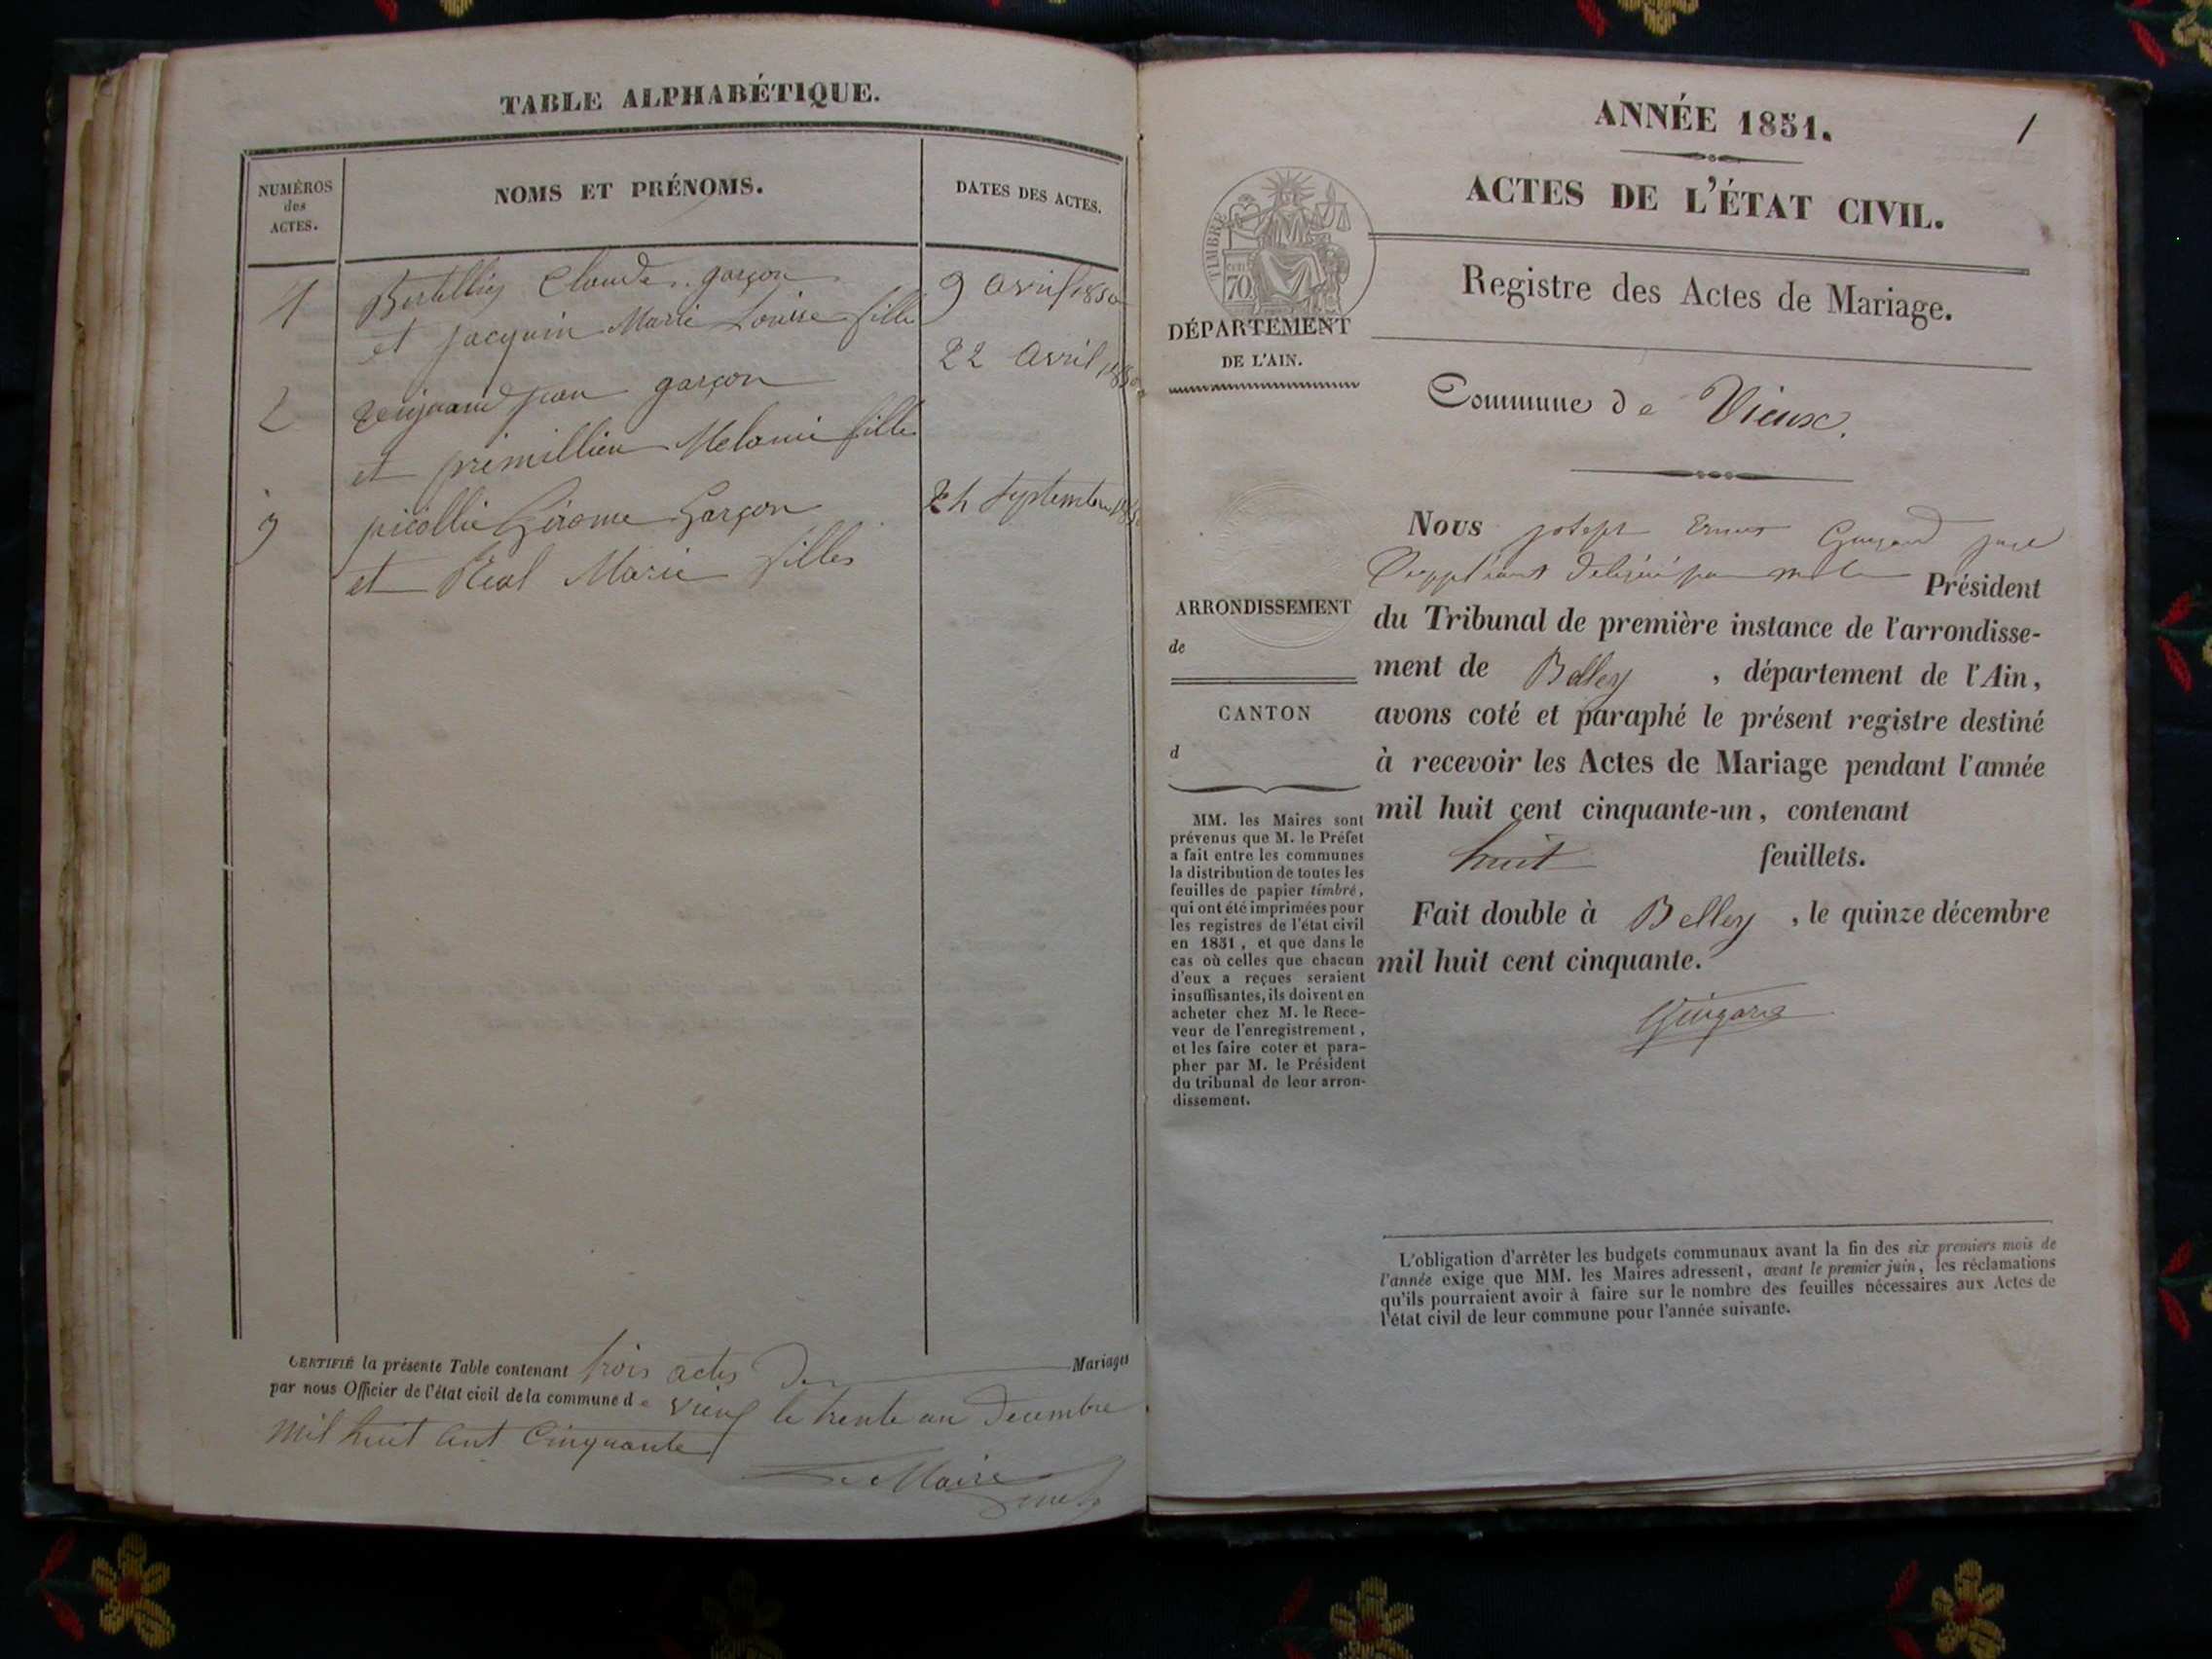 TABLE ALPHABÉTIQUE.
NUMÉROS
des
ACTES.
NOMS ET PRÉNOMS.
DATES DES ACTES.
1 Claude garçon 9 avril 1850
et jacquin Marie Louise fille
2 jean garçon 22 avril 1850
et primillieu Melanie fille
3 garçon septembre
et Réal Marie fille
CERTIFIÉ la présente Table contenant trois actes de Mariages
par nous Officier de l'état civil de la commune de vieux le trente un Decembre
mil huit cent Cinquante
Le Maire
ANNÉE 1851.
1
ACTES DE L'ÉTAT CIVIL.
Registre des Actes de Mariage.
TIMBRE
70
DÉPARTEMENT
DE L'AIN.
Commune de Vieux.
ARRONDISSEMENT
de
CANTON
d
MM. les Maires sont
prévenus que M. le Préfet
a fait entre les communes
la distribution de toutes les
feuilles de papier timbré,
qui ont été imprimées pour
les registres de l'état civil
en 1851, et que dans le
cas où celles que chacun
d'eux a reçues seraient
insuffisantes, ils doivent en
acheter chez M. le Rece-
veur de l'enregistrement,
et les faire coter et para-
pher par M. le Président
du tribunal de leur arron-
dissement.
Nous joseph juge
suppléant délégué par Président
du Tribunal de première instance de l'arrondisse-
ment de Belley, département de l'Ain,
avons coté et paraphé le présent registre destiné
à recevoir les Actes de Mariage pendant l'année
mil huit cent cinquante-un, contenant
huit feuillets.
Fait double à Belley, le quinze décembre
mil huit cent cinquante.
L'obligation d'arrêter les budgets communaux avant la fin des six premiers mois de
l'année exige que MM. les Maires adressent, avant le premier juin, les réclamations
qu'ils pourraient avoir à faire sur le nombre des feuilles nécessaires aux Actes de
l'état civil de leur commune pour l'année suivante.